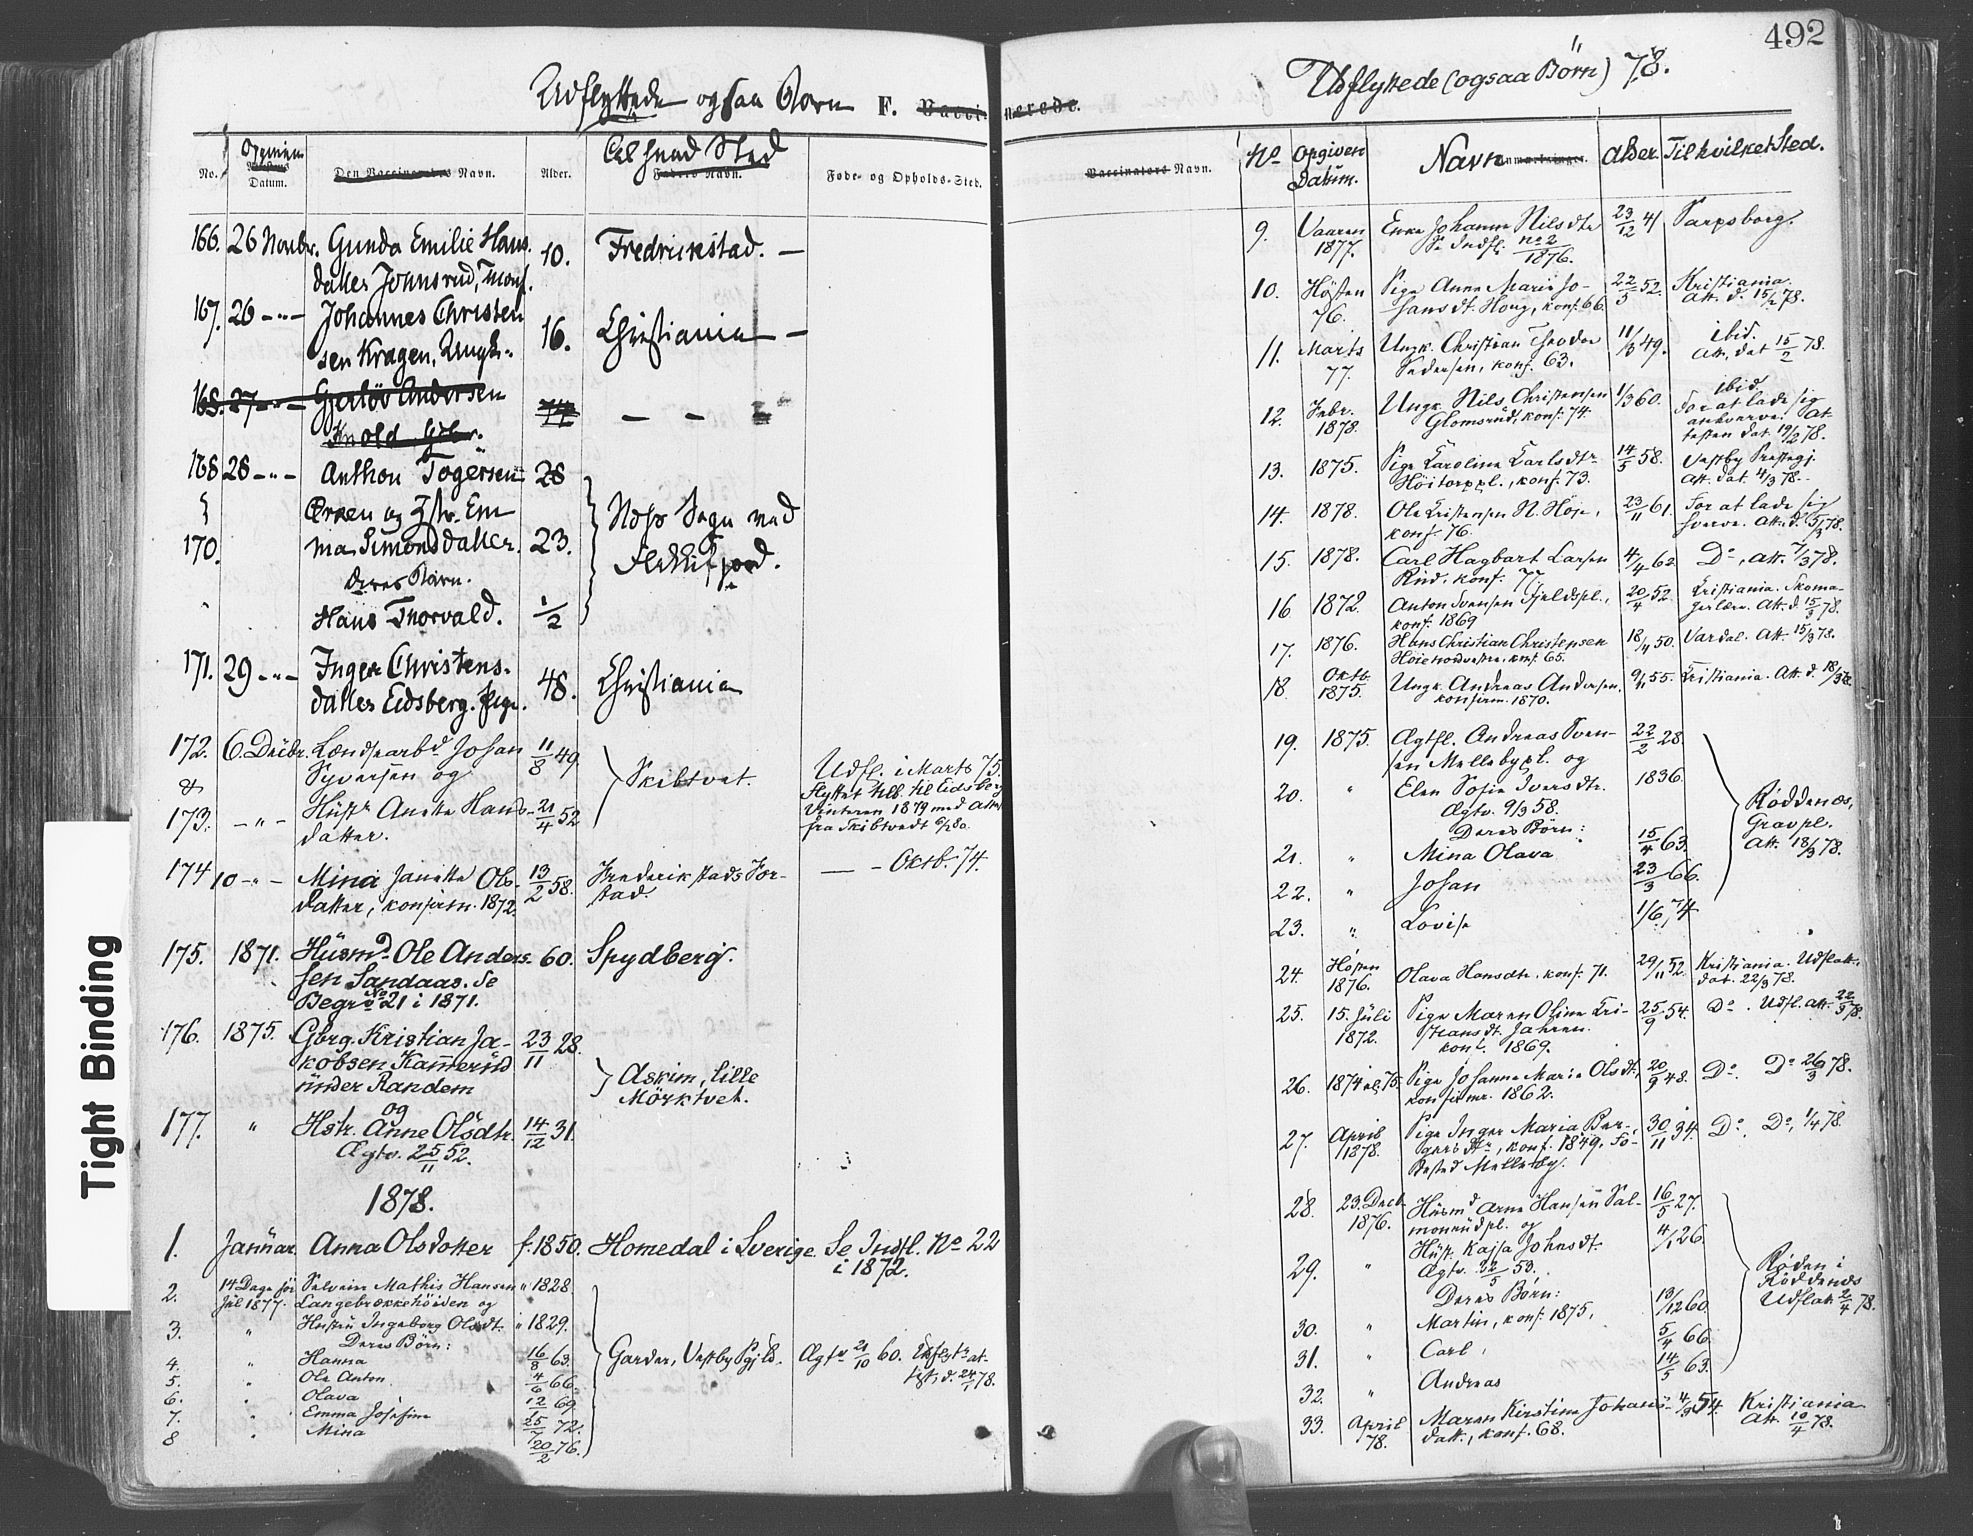 492
Udflyttede ogsaa Børn F. Vacci-
No.
Opgiven
Datum.
Den Vaccineredes Navn.
Alder.
Til hvad Sted
Faders Navn.
Føde- og Opholds-Sted.
166. 26 Novbr. Gunda Emilie Hans- 10. Fredrikstad. —
datter Johnsrud,
167. 26 -"- Johannes Christen 16. Christiania —
sen Kragen, Ungk.
168. 27 -"- Gjerløv Andersen 74 — — "
168 28 -"- Anthon Togersen 28
og Hstr. Em
170. ma Simonsdatter. 23. Næs Sogn ved
deres Børn. Flekkefjord.
Hans Thorvald. 1/2
171. 29 -"- Inger Christens- 48. Christiania
datter Eidsberg. Pige.
172. 6. Decbr. Johan 11/8 49
& Syversen og Skibtvet. Udfl. i Marts 75.
173. -"- Hustr Anette Hans- 21/4 52 flyttet til Eidsberg
datter. Vinteren 1879 med Attest
fra Skibtvedt
174 10 -"- Mina Janette Ols- 13/2 58. Frederikstads For- — - Oktb. 74.
datter, konfirm. 1872. stad.
175. 1871. Husmd. Ole Anders- 60. Spydberg.
sen Sandaas. Se
Begr No 21 i 1871.
176. 1875. Gbrg. Kristian Ja- 23/11 28.
kobsen Kamerud Askim, Lille
under Randem Mörktvet.
og
177. " Hstr. Anne Olsdtr. 14/12 31.
Ægtv. 25/11 52.
1878.
1. Januar. Anna Olsdotter f. 1850. Homedal i Sverige. Se Indfl. No 22
i 1872.
2. 14 Dage før Selveier Mathis Hansen " 1828.
Jul 1877. Langebrækkehöiden og
3. " Hustru Ingeborg Olsdt. " 1829.
Deres Børn:
4. " Hanna 16/8 63. Garder, Vestby Pgjld. Ægtv 21/10 60. Udflyttr at-
5. " Ole Anton 4/6 66. test, d. 24/1 78.
6. " Olava 12/ 69
7. " Emma Josefine 25/7 72.
8 " Mina 20/2 76.
nerede.
Udflyttede (ogsaa Børn) 78.
Vaccinators Navn.
No Opgiven Navn Anmærkninger. Alder. Til hvilket Sted.
Datum.
9. Vaaren Enke Johanne Nilsdtr 23/12 41 Sarpsborg.
1877. Se Indfl. No 2/1876.
10. Høsten Pige Anne Marie Jo- 22/5 52. Kristiania.
76. hansdt. Houg, konf. 66. Att. d. 15/2 78.
11. Marts Ungk. Christian Theodor 11/3 49. ibid.
77. Pedersen, konf. 63. Att, dat 15/2 78.
12. Febr. Ungk. Nils Christensen 1/3 60. ibid.
1878. Glomsrud, konf. 74. For at lade sig
At-
testen dat. 19/2 78.
13. 1875. Pige Karoline Karlsdtr 14/5 58. Vestby Prestegj.
Höitorppl., konf. 73. Att. dat. 4/3 78.
14. 1878. Ole Kristensen N. Höje, 23/11 61. For at lade sig
konf 76. hverve. Att. d. 5/3 78.
15. 1878. Carl Hagbart Larsen 4/4 62 Do, Att. 7/3 78.
Rud, konf. 77.
16 1872. Anton Svensen Fjeldspl., 20/4 52. Kristiania. Skoma-
konf. 1869 gerlære. Att. d. 15/3 78.
17. 1876. Hans Christian Christensen 18/11 50. Vardal. Att. 15/3 78.
Höie nordvestre, konf. 65.
18. Oktb. Ungk. Andreas Andersen, 9/11 55. Kristiania. Att. d. 18/3 78.
1875. konfirm. 1870.
19. 1875. Ægtfl. Andreas Sven- 22/2 28.
sen Mellebypl. og
20. " Elen Sofie Iversdtr. 1836.
Ægtv. 9/3 58. Röddenæs,
Deres Børn: Gravpl.
21. " Mina Olava 15/4 63. Att. 18/3 78.
22. " Johan 23/3 66.
23. " Lovise 1/6 74
24. Høsten Olava Hansdtr. konf. 71. 29/11 52. Kristiania. Udflatt.
1876. dat. 22/3 78.
25. 15. Juli Pige Maren Oline Kri- 25/9 54. Do. Udfl. att. 22/3 78.
1872. stiansdt. Jahren.
konf. 1869.
26. 1874 el. 75. Pige Johanne Marie Olsdt. 20/9 48. Do. Do 26/3 78.
konfirmr. 1862.
27. April Pige Inger Maria Bir- 30/11 34. Do. Do, 1/4 78.
1878. gersdtr, konf. 1849, Fö-
dested Mellebÿ.
28. 23. Decb. Husmd Arne Hansen Sal- 16/5 27.
1876. monrudpl. og
29. " Hust. Kajsa Johnsdt. 4/1 26.
Ægtv. 22/5 53. Röden i
Deres Børn: Röddenæs
30. " Martin, konf. 1875, 13/12 60 Udflatt. 2/4 78.
31. " Carl, 5/4 66.
32. " Andreas 14/5 63.
33. April Maren Kirstine Johans- 4/9 54. Kristiania
78. datt., konf. 68. Att. 10/4 78.
Tight Binding